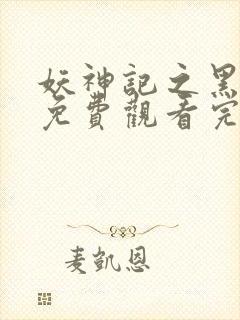 妖神記之黑
免費觀看完
麦凱恩